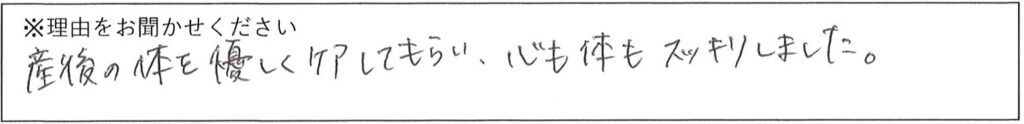 ※理由をお聞かせください
産後の体を優しくケアしてもらい、心も体もスッキリしました。